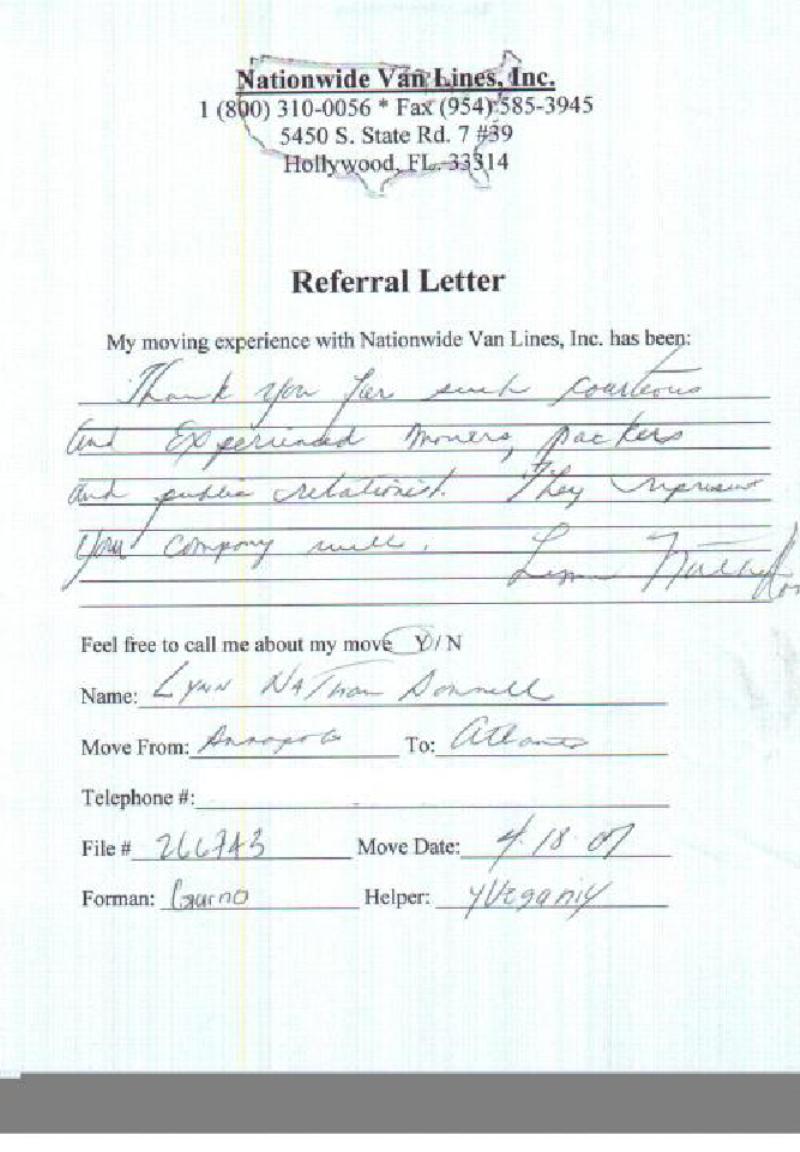 Nationwide Van Lines, Inc.
1 (800) 310-0056 * Fax (954) 585-3945
5450 S. State Rd. 7 #39
Hollywood, FL. 33314
Referral Letter
My moving experience with Nationwide Van Lines, Inc. has been:
Thank you for such courteous
and Experienced movers, packers
and public relationist. They represent
your company well.
Feel free to call me about my move Y/N
Name: Lynn Nathan
Move From: To: Atlanta
Telephone #:
File # 266743 Move Date: 4.18.07
Forman: Helper: